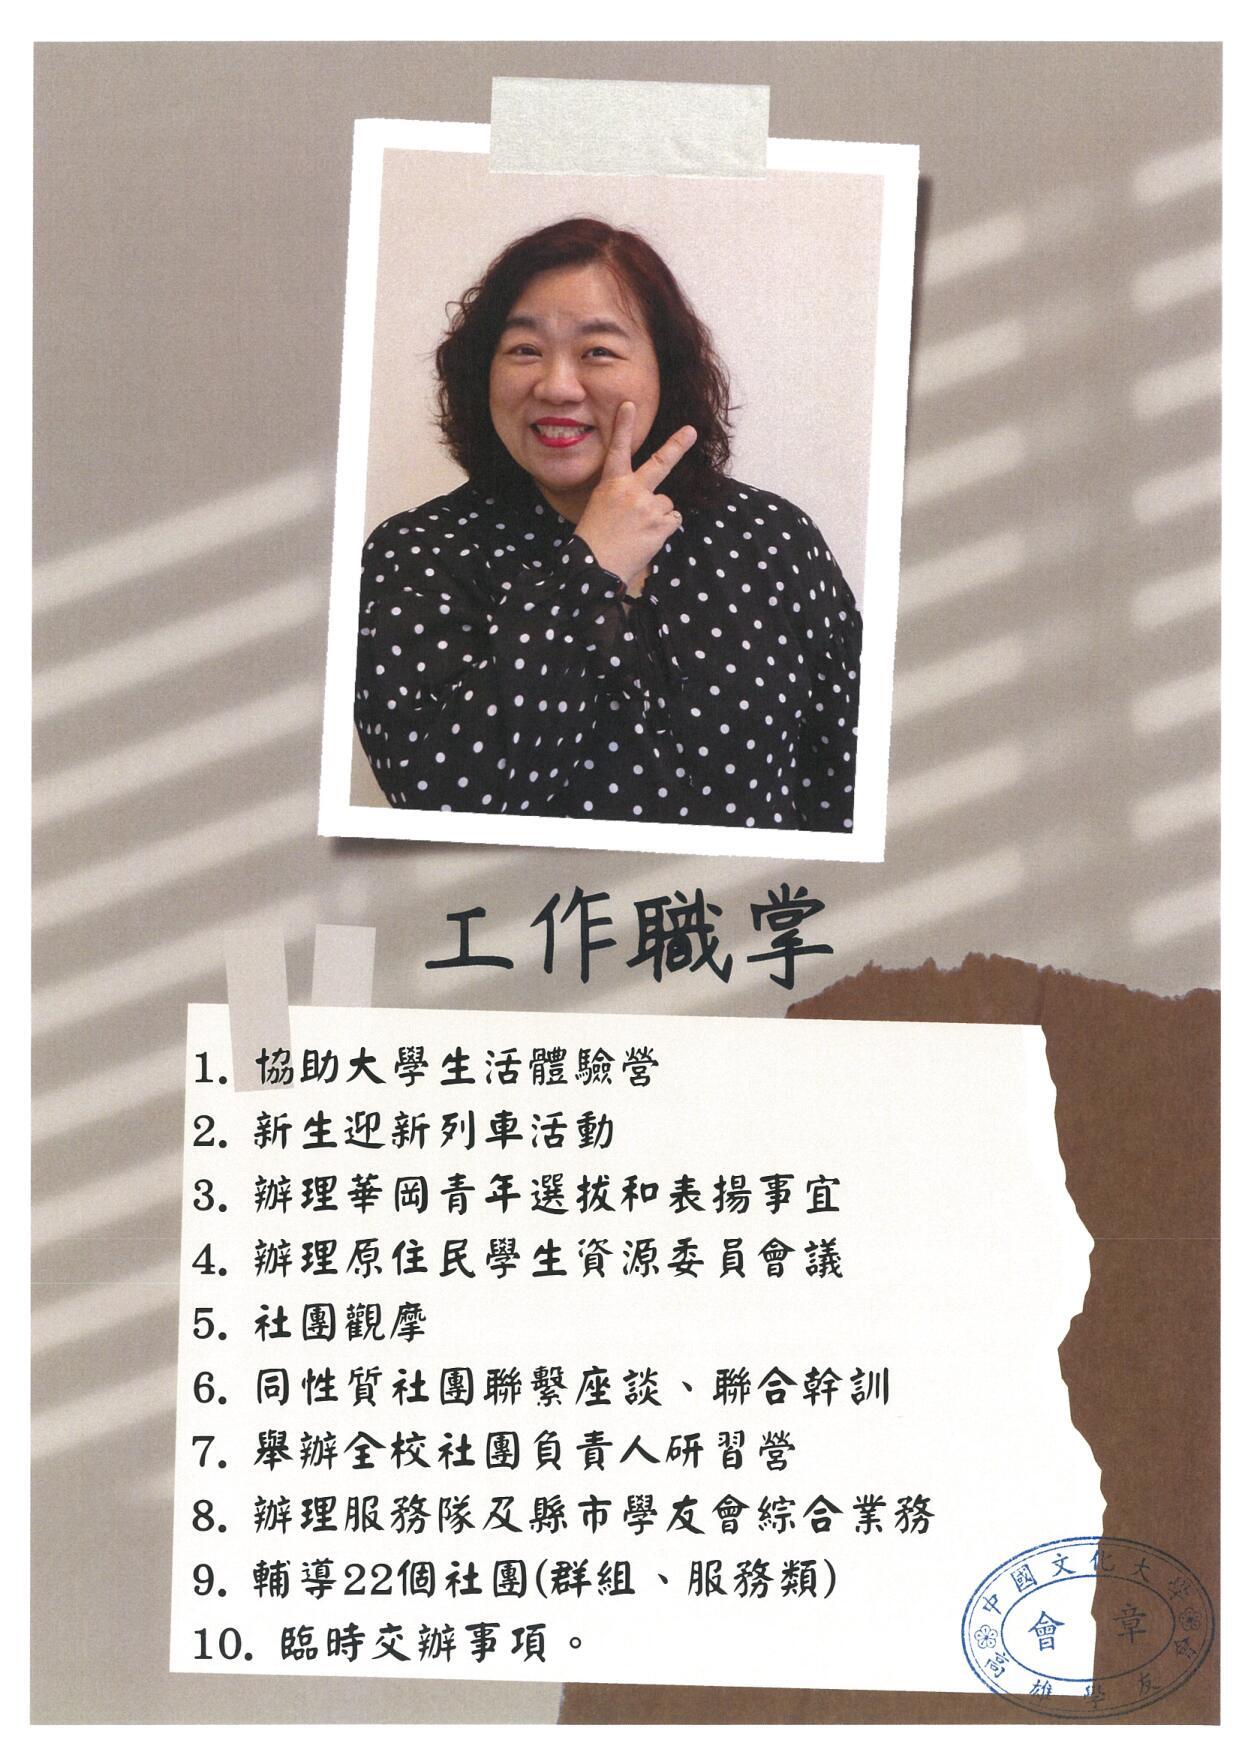 工作職掌
1. 協助大學生活體驗營
2. 新生迎新列車活動
3. 辦理華岡青年選拔和表揚事宜
4. 辦理原住民學生資源委員會議
5. 社團觀摩
6. 同性質社團聯繫座談、聯合幹訓
7. 舉辦全校社團負責人研習營
8. 辦理服務隊及縣市學友會綜合業務
9. 輔導22個社團(群組、服務類)
10. 臨時交辦事項。
中國文化大學
會章
高雄學友會